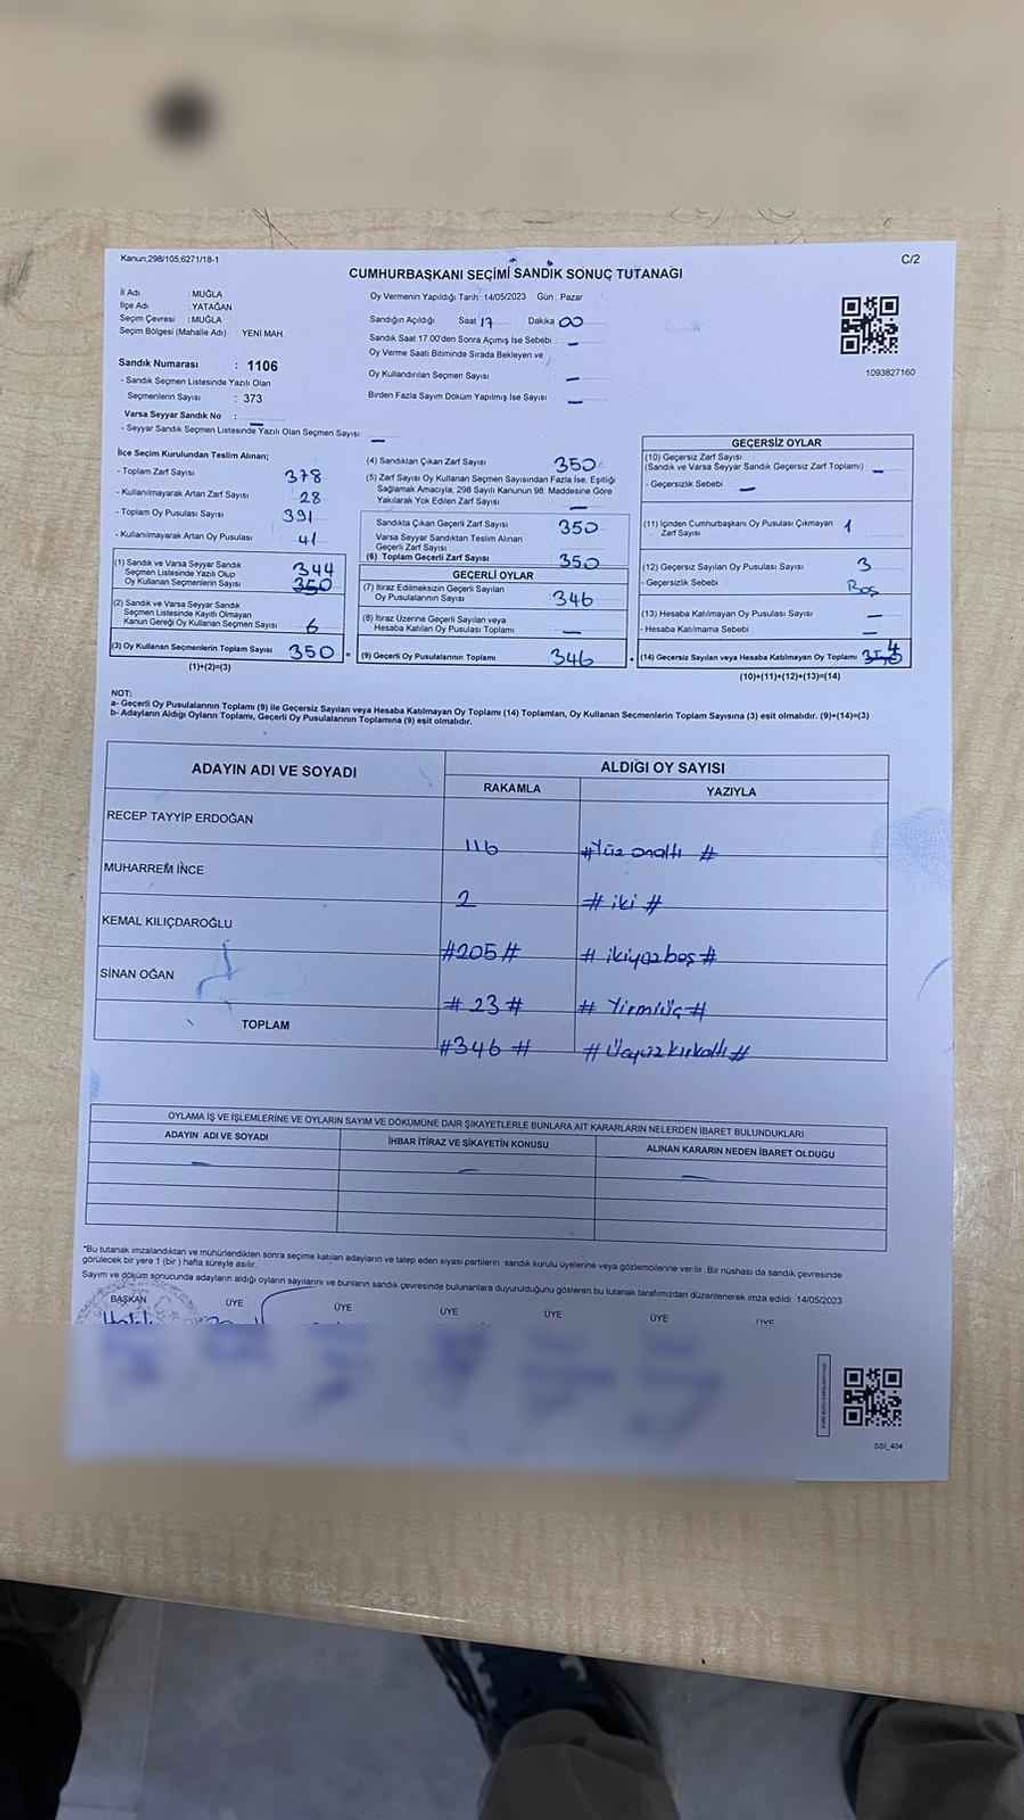 Kanun;298/105;6271/18-1
C/2
CUMHURBAŞKANI SEÇİMİ SANDIK SONUÇ TUTANAĞI
İl Adı : MUĞLA
İlçe Adı : YATAĞAN
Seçim Çevresi : MUĞLA
Seçim Bölgesi (Mahalle Adı) : YENİ MAH.
Oy Vermenin Yapıldığı Tarih: 14/05/2023 Gün : Pazar
Sandığın Açıldığı Saat 17 Dakika 00
Sandık Saat 17.00'den Sonra Açımış İse Sebebi : —
Oy Verme Saati Bitiminde Sırada Bekleyen ve
Oy Kullandırılan Seçmen Sayısı —
Birden Fazla Sayım Döküm Yapılmış İse Sayısı —
1093827160
Sandık Numarası : 1106
- Sandık Seçmen Listesinde Yazılı Olan
Seçmenlerin Sayısı : 373
Varsa Seyyar Sandık No : —
- Seyyar Sandık Seçmen Listesinde Yazılı Olan Seçmen Sayısı —
İlçe Seçim Kurulundan Teslim Alınan;
- Toplam Zarf Sayısı 378
- Kullanılmayarak Artan Zarf Sayısı 28
- Toplam Oy Pusulası Sayısı 391
- Kullanılmayarak Artan Oy Pusulası 41
(1) Sandık ve Varsa Seyyar Sandık
Seçmen Listesinde Yazılı Olup
Oy Kullanan Seçmenlerin Sayısı 344
350
(2) Sandık ve Varsa Seyyar Sandık
Seçmen Listesinde Kayıtlı Olmayan
Kanun Gereği Oy Kullanan Seçmen Sayısı 6
(3) Oy Kullanan Seçmenlerin Toplam Sayısı 350 =
(1)+(2)=(3)
(4) Sandıktan Çıkan Zarf Sayısı 350
(5) Zarf Sayısı Oy Kullanan Seçmen Sayısından Fazla İse, Eşitliği
Sağlamak Amacıyla, 298 Sayılı Kanunun 98. Maddesine Göre
Yakılarak Yok Edilen Zarf Sayısı —
Sandıkta Çıkan Geçerli Zarf Sayısı 350
Varsa Seyyar Sandıktan Teslim Alınan
Geçerli Zarf Sayısı
(6) Toplam Geçerli Zarf Sayısı 350
GEÇERLİ OYLAR
(7) İtiraz Edilmeksizin Geçerli Sayılan
Oy Pusulalarının Sayısı 346
(8) İtiraz Üzerine Geçerli Sayılan veya
Hesaba Katılan Oy Pusulası Toplamı —
(9) Geçerli Oy Pusulalarının Toplamı 346 +
GEÇERSİZ OYLAR
(10) Geçersiz Zarf Sayısı
(Sandık ve Varsa Seyyar Sandık Geçersiz Zarf Toplamı) —
- Geçersizlik Sebebi : —
(11) İçinden Cumhurbaşkanı Oy Pusulası Çıkmayan
Zarf Sayısı 1
(12) Geçersiz Sayılan Oy Pusulası Sayısı 3
- Geçersizlik Sebebi Boş
(13) Hesaba Katılmayan Oy Pusulası Sayısı —
- Hesaba Katılmama Sebebi —
(14) Geçersiz Sayılan veya Hesaba Katılmayan Oy Toplamı 4
(10)+(11)+(12)+(13)=(14)
NOT:
a- Geçerli Oy Pusulalarının Toplamı (9) ile Geçersiz Sayılan veya Hesaba Katılmayan Oy Toplamı (14) Toplamları, Oy Kullanan Seçmenlerin Toplam Sayısına (3) eşit olmalıdır. (9)+(14)=(3)
b- Adayların Aldığı Oyların Toplamı, Geçerli Oy Pusulalarının Toplamına (9) eşit olmalıdır.
ADAYIN ADI VE SOYADI
ALDIĞI OY SAYISI
RAKAMLA YAZIYLA
RECEP TAYYİP ERDOĞAN 116 #Yüz onaltı #
MUHARREM İNCE 2 # iki #
KEMAL KILIÇDAROĞLU #205# # ikiyüzbeş #
SİNAN OĞAN # 23 # # Yirmiüç #
TOPLAM #346 # # Üçyüzkırkaltı #
OYLAMA İŞ VE İŞLEMLERİNE VE OYLARIN SAYIM VE DÖKÜMÜNE DAİR ŞİKAYETLERLE BUNLARA AİT KARARLARIN NELERDEN İBARET BULUNDUKLARI
ADAYIN ADI VE SOYADI İHBAR İTİRAZ VE ŞİKAYETİN KONUSU ALINAN KARARIN NEDEN İBARET OLDUĞU
— — —
*Bu tutanak imzalandıktan ve mühürlendikten sonra seçime katılan adayların ve talep eden siyasi partilerin sandık kurulu üyelerine veya gözlemcilerine verilir. Bir nüshası da sandık çevresinde
görülecek bir yere 1 (bir) hafta süreyle asılır.
Sayım ve döküm sonucunda adayların aldığı oyların sayılarını ve bunların sandık çevresinde bulunanlara duyurulduğunu gösteren bu tutanak tarafımızdan düzenlenerek imza edildi. 14/05/2023
BAŞKAN ÜYE ÜYE ÜYE ÜYE ÜYE ÜYE
SSI_404